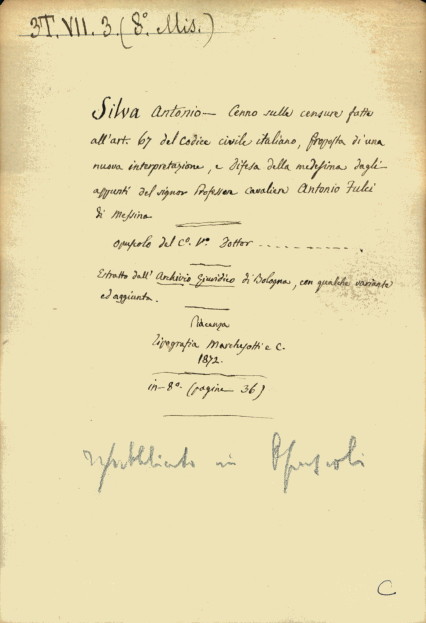 3T. VII. 3. (8.° Mis.)
Silva Antonio — Cenno sulle censure fatte
all'art. 67 del Codice civile italiano, proposta di una
nuova interpretazione, e difesa della medesima dagli
appunti del signor Professore Cavaliere Antonio Fulci
di Messina
opuscolo del C.° V.° Dottor
Estratto dall'Archivio Giuridico di Bologna, con qualche variante
ed aggiunta.
Piacenza
Tipografia Marchesotti e C.
1872.
in-8.° (pagine 36)
ripubblicato in Opuscoli
C